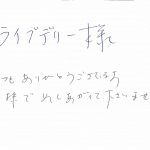 ライブデリー様
つもありがとうございます
様でめしあがって下さいませ